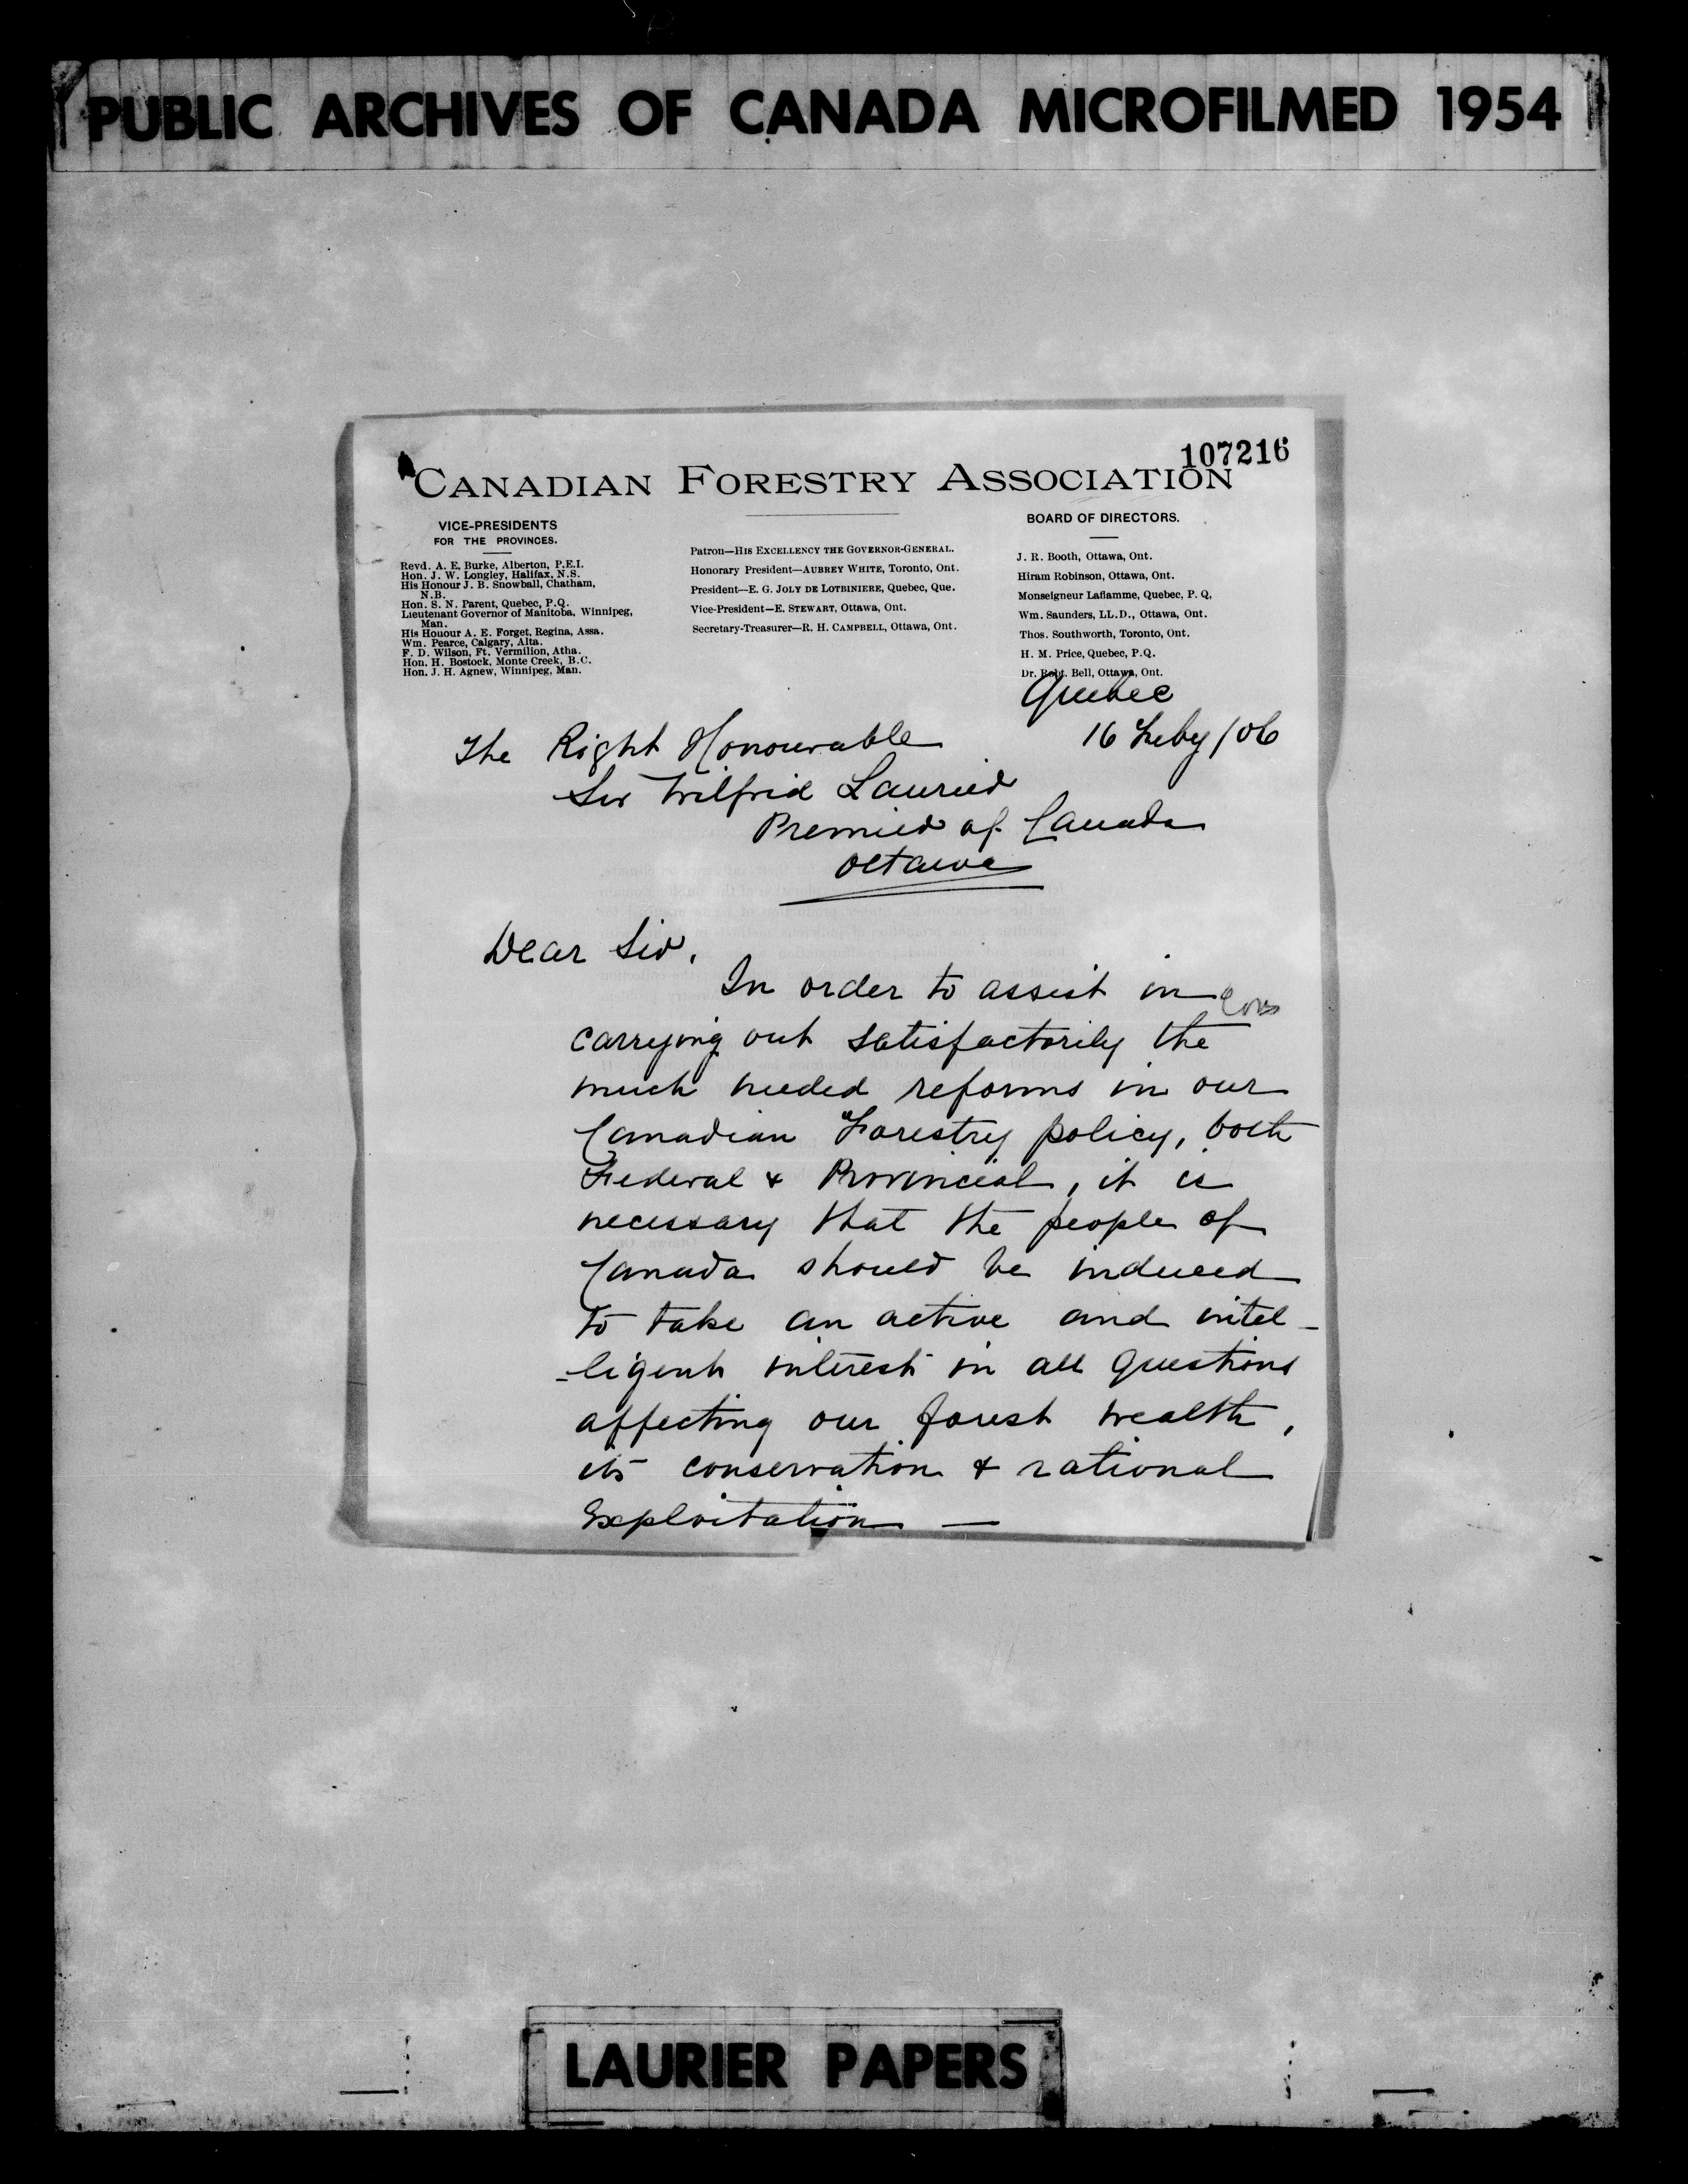 PUBLIC ARCHIVES OF CANADA MICROFILMED 1954
107216
CANADIAN FORESTRY ASSOCIATION
VICE-PRESIDENTS
FOR THE PROVINCES.
Revd. A. E. Burke, Alberton, P.E.I.
Hon. J. W. Longley, Halifax, N.S.
His Honour J. B. Snowball, Chatham,
N.B.
Hon. S. N. Parent, Quebec, P.Q.
Lieutenant Governor of Manitoba, Winnipeg,
Man.
His Honour A. E. Forget, Regina, Assa.
Wm. Pearce, Calgary, Alta.
F. D. Wilson, Ft. Vermilion, Atha.
Hon. H. Bostock, Monte Creek, B.C.
Hon. J. H. Agnew, Winnipeg, Man.
Patron—HIS EXCELLENCY THE GOVERNOR-GENERAL.
Honorary President—AUBREY WHITE, Toronto, Ont.
President—E. G. JOLY DE LOTBINIERE, Quebec, Que.
Vice-President—E. STEWART, Ottawa, Ont.
Secretary-Treasurer—R. H. CAMPBELL, Ottawa, Ont.
BOARD OF DIRECTORS.
J. R. Booth, Ottawa, Ont.
Hiram Robinson, Ottawa, Ont.
Monseigneur Laflamme, Quebec, P. Q,
Wm. Saunders, LL.D., Ottawa, Ont.
Thos. Southworth, Toronto, Ont.
H. M. Price, Quebec, P.Q.
Dr. Robt. Bell, Ottawa, Ont.
Quebec
16 Feby /06
The Right Honourable
Sir Wilfrid Laurier
Premier of Canada
Ottawa
Dear Sir,
In order to assist in
carrying out satisfactorily the
much needed reforms in our
Canadian Forestry policy, both
Federal & Provincial, it is
necessary that the people of
Canada should be induced
to take an active and intel-
-ligent interest in all questions
affecting our forest wealth,
its conservation & rational
Exploitation —
LAURIER PAPERS